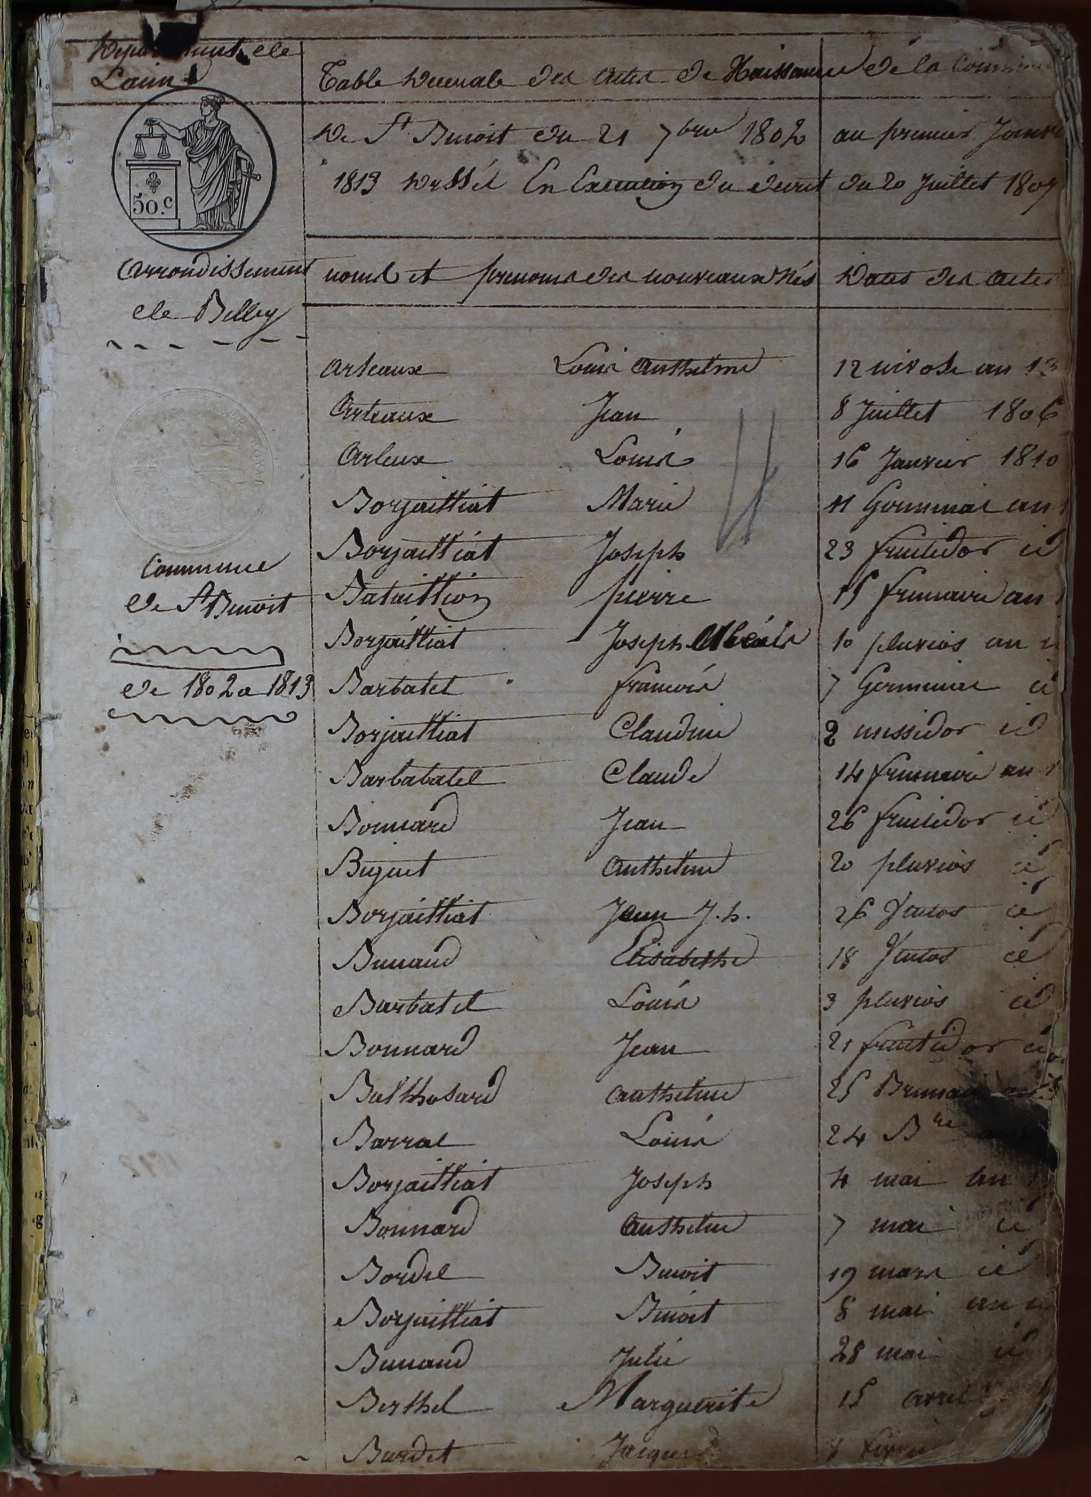 Département de
Lain
Table decenale des actes de Naissance de la Commune
De St Benoit du 21 7bre 1802 au premier Janvier
1813 dressée En Execution du decret du 20 Juillet 1807
50.c
Arrondissement
de Belley
noms et prenoms des nouveaux Nés Dates des actes
Commune
de St Benoit
de 1802 a 1813
Arteaux Louis Anthelme 12 nivose an 13
Arteaux Jean 8 Juillet 1806
Arteux Louis 16 Janvier 1810
Borjailliat Marie 11 Germinal an
Borjailliat Joseph 23 fructidor id
Bataillion pierre 15 frimaire an
Borjailliat Joseph 10 pluvios an
Barbatel francois 7 Germinal id
Borjailliat Claudine 2 messidor id
Barbatel Claude 14 frimaire an
Bonnard Jean 26 fructidor id
Bijuet Anthelme 20 pluvios id
Borjailliat Jean J.h. 26 Ventos id
Bunand Elisabethe 18 Ventos id
Barbatel Louis 3 pluvios id
Bonnard Jean 21 fructidor id
Balthosard anthelme 25 Brumaire
Barral Louis 24 Bre
Borjailliat Joseph 4 mai an
Bonnard Anthelme 7 mai id
Bordel Benoit 19 mars id
Borjailliat Benoit 8 mai an
Bunand Julie 28 mai id
Berthel Marguerite 15 avril
Burdet Jacques